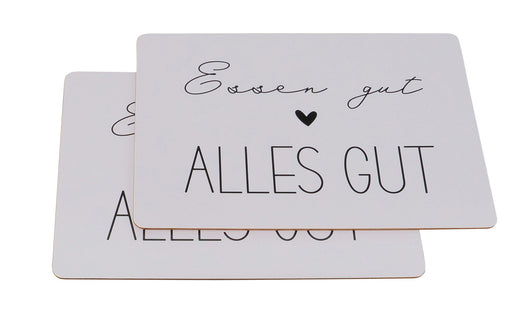 Essen gut
ALLES GUT
E
ALLES GUT